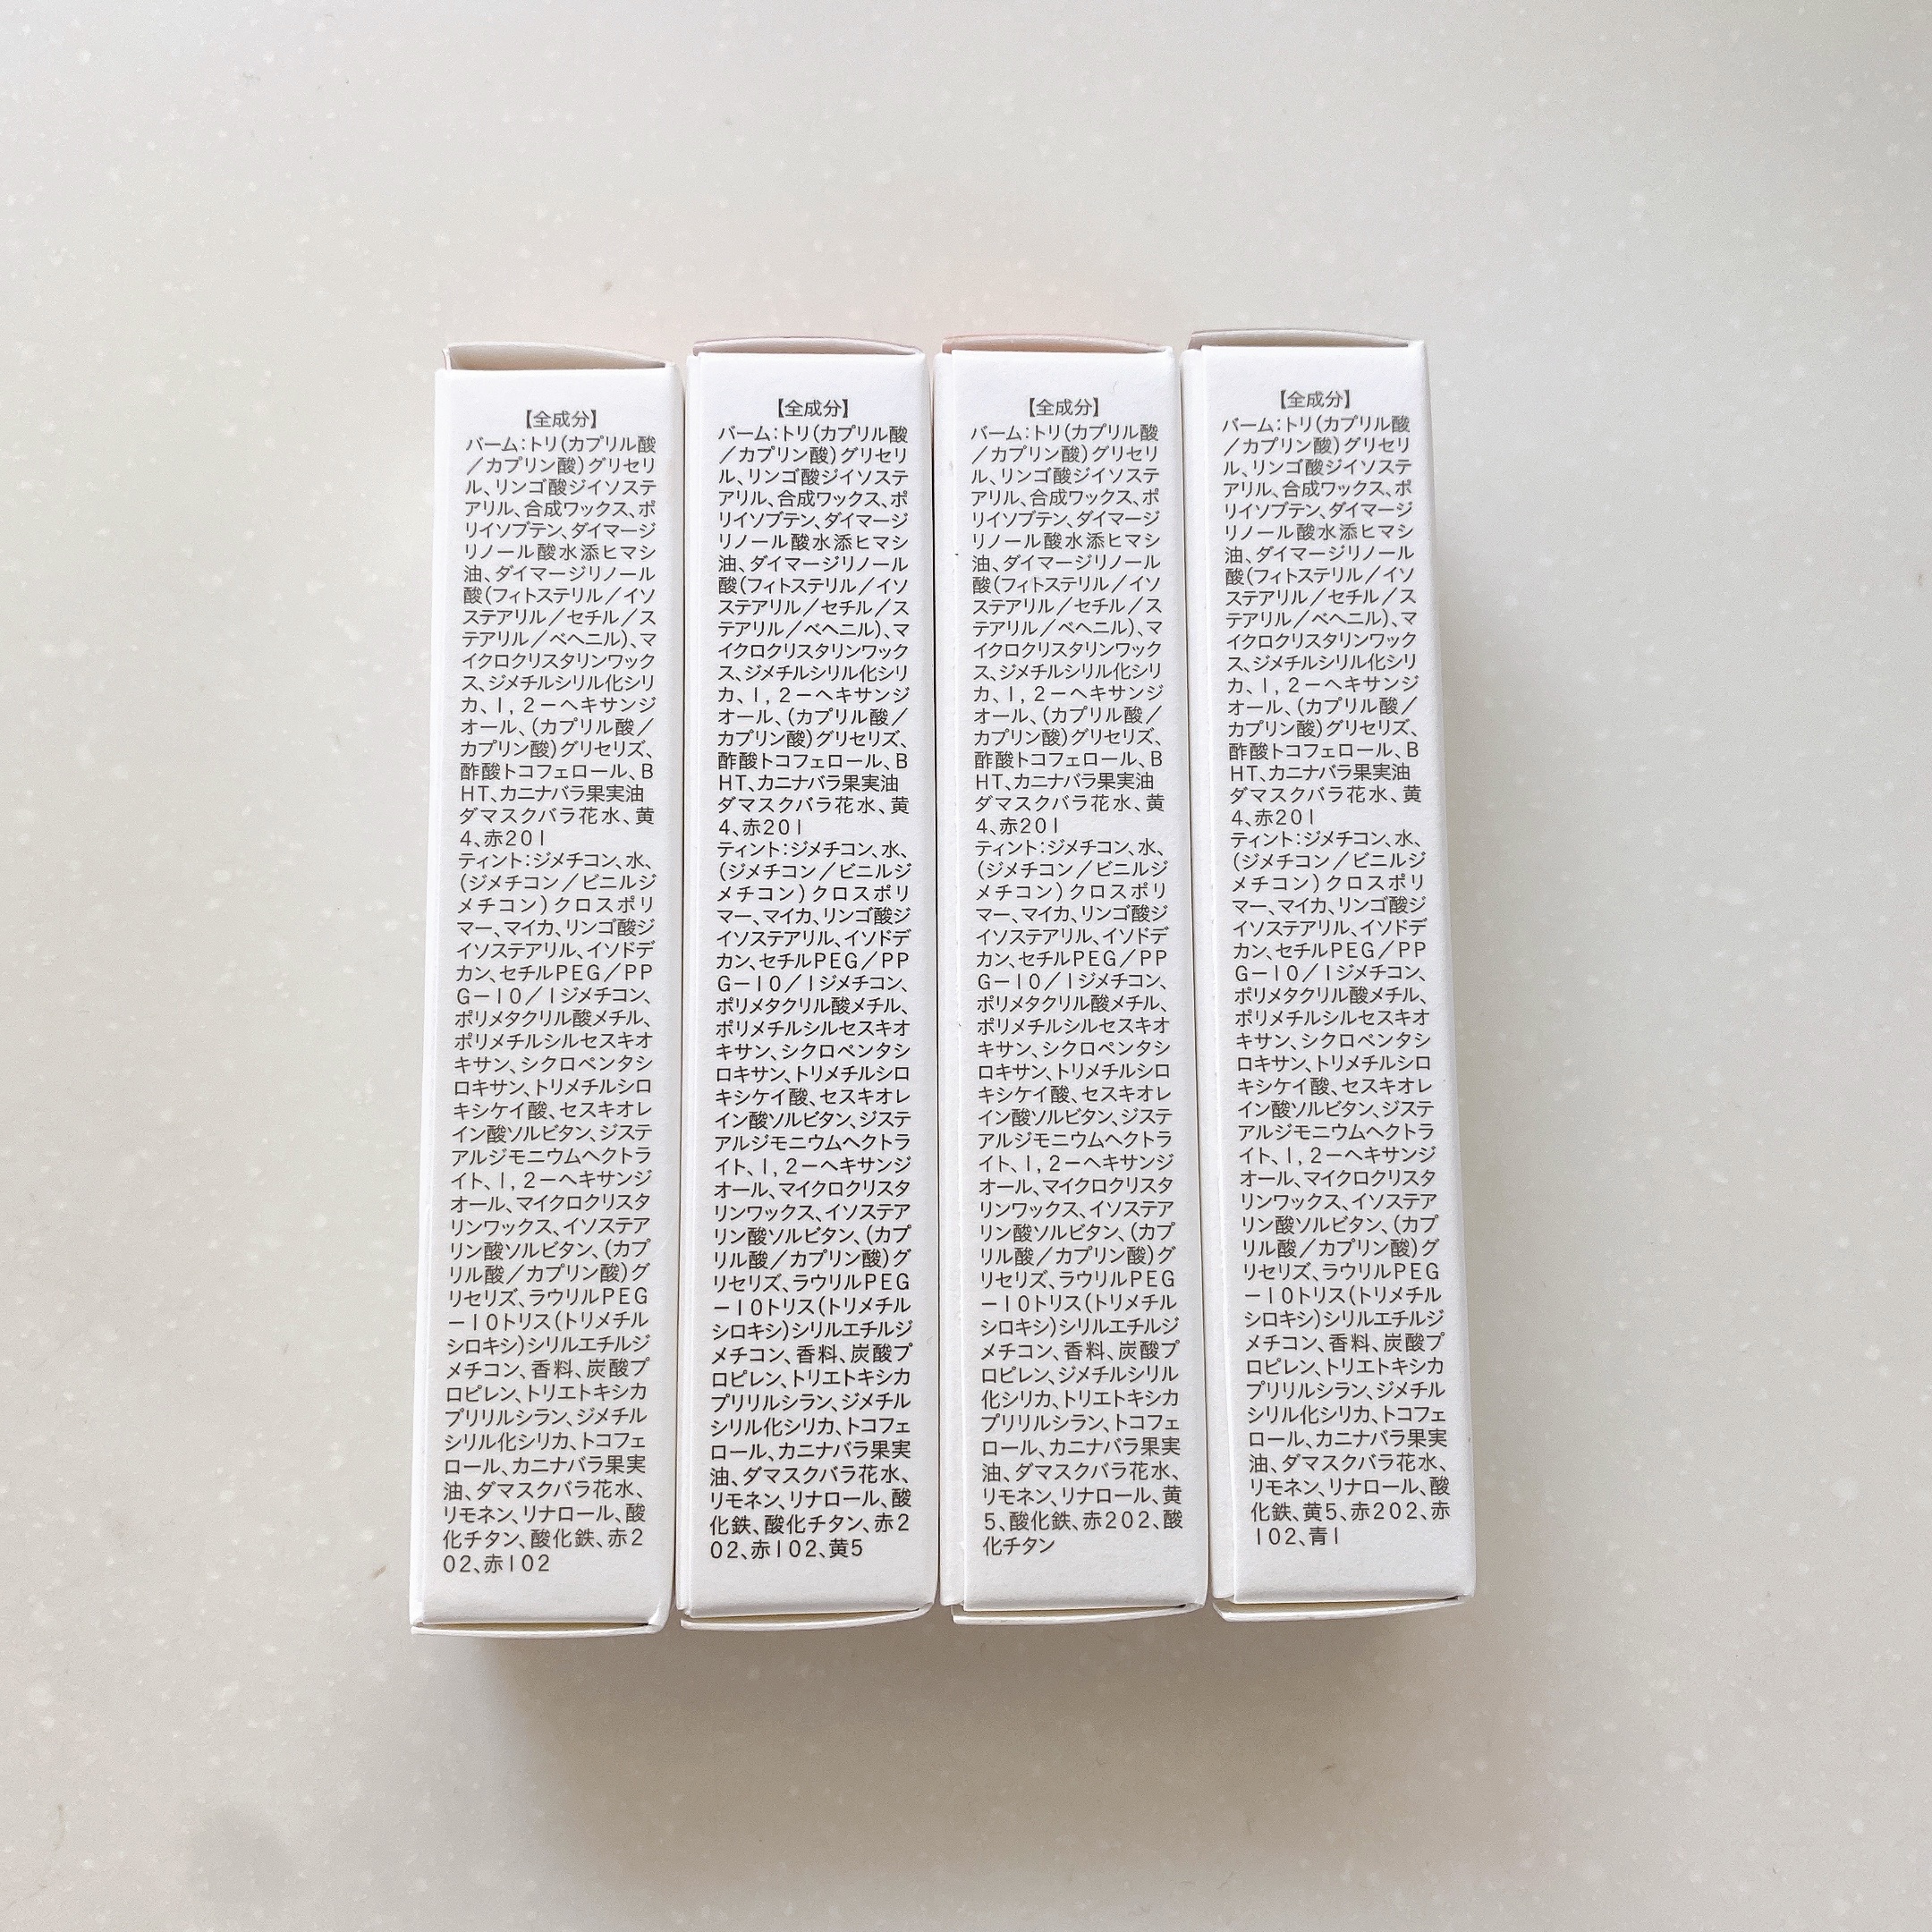 【全成分】
バーム：トリ(カプリル酸
／カプリン酸)グリセリ
ル、リンゴ酸ジイソステ
アリル、合成ワックス、ポ
リイソブテン、ダイマージ
リノール酸水添ヒマシ
油、ダイマージリノール
酸(フィトステリル／イソ
ステアリル／セチル／ス
テアリル／ベヘニル)、マ
イクロクリスタリンワック
ス、ジメチルシリル化シリ
カ、1,2－ヘキサンジ
オール、(カプリル酸／
カプリン酸)グリセリズ、
酢酸トコフェロール、B
HT、カニナバラ果実油
ダマスクバラ花水、黄
4、赤201
ティント：ジメチコン、水、
(ジメチコン／ビニルジ
メチコン)クロスポリ
マー、マイカ、リンゴ酸ジ
イソステアリル、イソドデ
カン、セチルPEG／PP
G－10／1ジメチコン、
ポリメタクリル酸メチル、
ポリメチルシルセスキオ
キサン、シクロペンタシ
ロキサン、トリメチルシロ
キシケイ酸、セスキオレ
イン酸ソルビタン、ジステ
アルジモニウムヘクトラ
イト、1,2－ヘキサンジ
オール、マイクロクリスタ
リンワックス、イソステア
リン酸ソルビタン、(カプ
リル酸／カプリン酸)グ
リセリズ、ラウリルPEG
－10トリス(トリメチル
シロキシ)シリルエチルジ
メチコン、香料、炭酸プ
ロピレン、トリエトキシカ
プリリルシラン、ジメチル
シリル化シリカ、トコフェ
ロール、カニナバラ果実
油、ダマスクバラ花水、
リモネン、リナロール、酸
化チタン、酸化鉄、赤2
02、赤102
【全成分】
バーム：トリ(カプリル酸
／カプリン酸)グリセリ
ル、リンゴ酸ジイソステ
アリル、合成ワックス、ポ
リイソブテン、ダイマージ
リノール酸水添ヒマシ
油、ダイマージリノール
酸(フィトステリル／イソ
ステアリル／セチル／ス
テアリル／ベヘニル)、マ
イクロクリスタリンワック
ス、ジメチルシリル化シリ
カ、1,2－ヘキサンジ
オール、(カプリル酸／
カプリン酸)グリセリズ、
酢酸トコフェロール、B
HT、カニナバラ果実油
ダマスクバラ花水、黄
4、赤201
ティント：ジメチコン、水、
(ジメチコン／ビニルジ
メチコン)クロスポリ
マー、マイカ、リンゴ酸ジ
イソステアリル、イソドデ
カン、セチルPEG／PP
G－10／1ジメチコン、
ポリメタクリル酸メチル、
ポリメチルシルセスキオ
キサン、シクロペンタシ
ロキサン、トリメチルシロ
キシケイ酸、セスキオレ
イン酸ソルビタン、ジステ
アルジモニウムヘクトラ
イト、1,2－ヘキサンジ
オール、マイクロクリスタ
リンワックス、イソステア
リン酸ソルビタン、(カプ
リル酸／カプリン酸)グ
リセリズ、ラウリルPEG
－10トリス(トリメチル
シロキシ)シリルエチルジ
メチコン、香料、炭酸プ
ロピレン、トリエトキシカ
プリリルシラン、ジメチル
シリル化シリカ、トコフェ
ロール、カニナバラ果実
油、ダマスクバラ花水、
リモネン、リナロール、酸
化鉄、酸化チタン、赤2
02、赤102、黄5
【全成分】
バーム：トリ(カプリル酸
／カプリン酸)グリセリ
ル、リンゴ酸ジイソステ
アリル、合成ワックス、ポ
リイソブテン、ダイマージ
リノール酸水添ヒマシ
油、ダイマージリノール
酸(フィトステリル／イソ
ステアリル／セチル／ス
テアリル／ベヘニル)、マ
イクロクリスタリンワック
ス、ジメチルシリル化シリ
カ、1,2－ヘキサンジ
オール、(カプリル酸／
カプリン酸)グリセリズ、
酢酸トコフェロール、B
HT、カニナバラ果実油
ダマスクバラ花水、黄
4、赤201
ティント：ジメチコン、水、
(ジメチコン／ビニルジ
メチコン)クロスポリ
マー、マイカ、リンゴ酸ジ
イソステアリル、イソドデ
カン、セチルPEG／PP
G－10／1ジメチコン、
ポリメタクリル酸メチル、
ポリメチルシルセスキオ
キサン、シクロペンタシ
ロキサン、トリメチルシロ
キシケイ酸、セスキオレ
イン酸ソルビタン、ジステ
アルジモニウムヘクトラ
イト、1,2－ヘキサンジ
オール、マイクロクリスタ
リンワックス、イソステア
リン酸ソルビタン、(カプ
リル酸／カプリン酸)グ
リセリズ、ラウリルPEG
－10トリス(トリメチル
シロキシ)シリルエチルジ
メチコン、香料、炭酸プ
ロピレン、ジメチルシリル
化シリカ、トリエトキシカ
プリリルシラン、トコフェ
ロール、カニナバラ果実
油、ダマスクバラ花水、
リモネン、リナロール、黄
5、酸化鉄、赤202、酸
化チタン
【全成分】
バーム：トリ(カプリル酸
／カプリン酸)グリセリ
ル、リンゴ酸ジイソステ
アリル、合成ワックス、ポ
リイソブテン、ダイマージ
リノール酸水添ヒマシ
油、ダイマージリノール
酸(フィトステリル／イソ
ステアリル／セチル／ス
テアリル／ベヘニル)、マ
イクロクリスタリンワック
ス、ジメチルシリル化シリ
カ、1,2－ヘキサンジ
オール、(カプリル酸／
カプリン酸)グリセリズ、
酢酸トコフェロール、B
HT、カニナバラ果実油
ダマスクバラ花水、黄
4、赤201
ティント：ジメチコン、水、
(ジメチコン／ビニルジ
メチコン)クロスポリ
マー、マイカ、リンゴ酸ジ
イソステアリル、イソドデ
カン、セチルPEG／PP
G－10／1ジメチコン、
ポリメタクリル酸メチル、
ポリメチルシルセスキオ
キサン、シクロペンタシ
ロキサン、トリメチルシロ
キシケイ酸、セスキオレ
イン酸ソルビタン、ジステ
アルジモニウムヘクトラ
イト、1,2－ヘキサンジ
オール、マイクロクリスタ
リンワックス、イソステア
リン酸ソルビタン、(カプ
リル酸／カプリン酸)グ
リセリズ、ラウリルPEG
－10トリス(トリメチル
シロキシ)シリルエチルジ
メチコン、香料、炭酸プ
ロピレン、トリエトキシカ
プリリルシラン、ジメチル
シリル化シリカ、トコフェ
ロール、カニナバラ果実
油、ダマスクバラ花水、
リモネン、リナロール、酸
化鉄、黄5、赤202、赤
102、青1